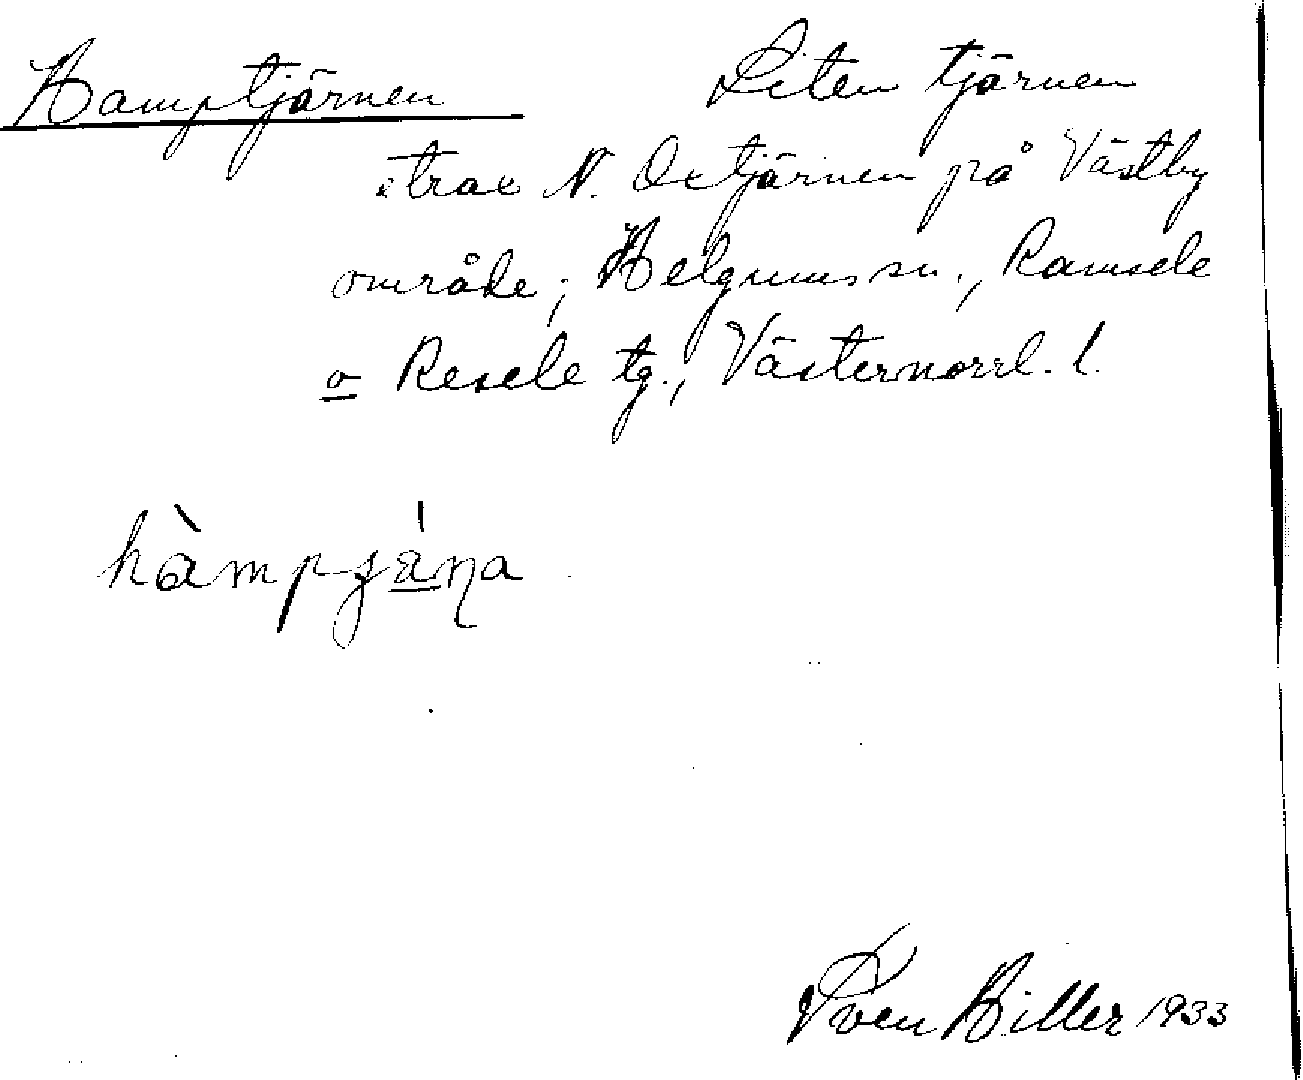 Hamptjärnen Liten tjärnen
strax N. Oxtjärnen på Västby
område; Helgums sn., Ramsele
o Resele tg., Västernorrl. l.
hàmpjä́na
Sven Hiller 1933